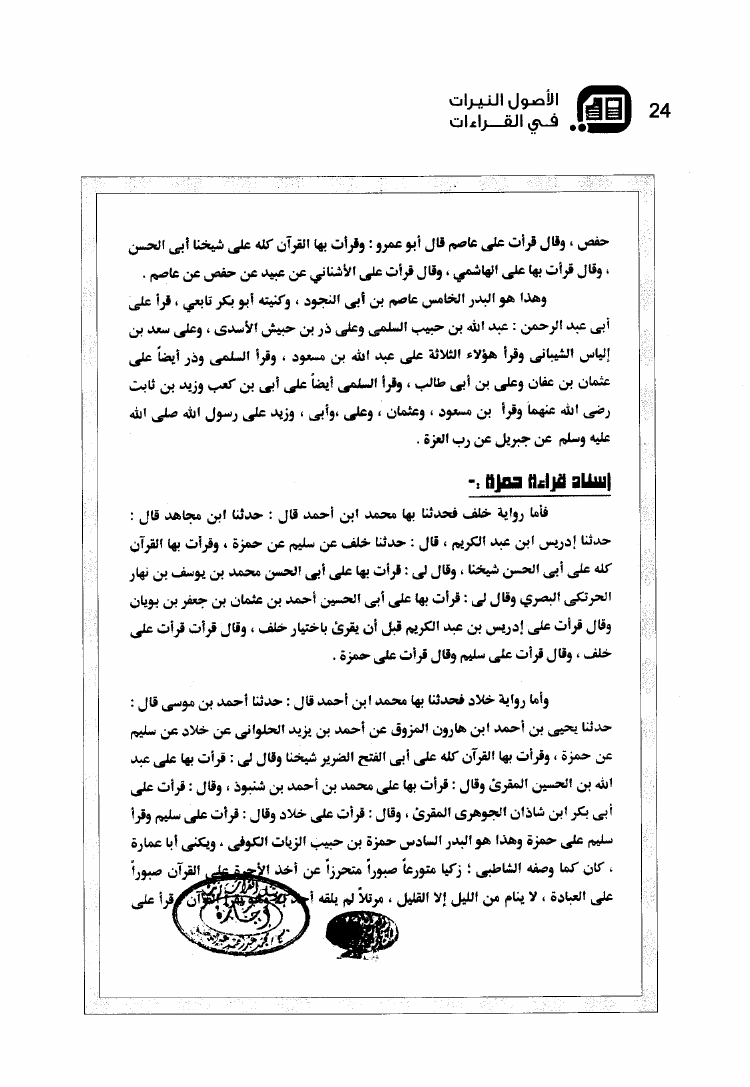 24
الأصول النيرات
في القـــراءات
حفص ، وقال قرأت على عاصم قال أبو عمرو : وقرأت بها القرآن كله على شيخنا أبى الحسن
، وقال قرأت بها على الهاشمي ، وقال قرأت على الأشناني عن عبيد عن حفص عن عاصم .
وهذا هو البدر الخامس عاصم بن أبى النجود ، وكنيته أبو بكر تابعي ، قرأ على
أبى عبد الرحمن : عبد الله بن حبيب السلمى وعلى ذر بن حبيش الأسدى ، وعلى سعد بن
إلياس الشيبانى وقرأ هؤلاء الثلاثة على عبد الله بن مسعود ، وقرأ السلمى وذر أيضاً على
عثمان بن عفان وعلى بن أبى طالب ، وقرأ السلمى أيضاً على أبى بن كعب وزيد بن ثابت
رضى الله عنهما وقرأ بن مسعود ، وعثمان ، وعلى ،وأبى ، وزيد على رسول الله صلى الله
عليه وسلم عن جبريل عن رب العزة .
إسناد قراءة حمزة :-
فأما رواية خلف فحدثنا بها محمد ابن أحمد قال : حدثنا ابن مجاهد قال :
حدثنا إدريس ابن عبد الكريم ، قال : حدثنا خلف عن سليم عن حمزة ، وقرأت بها القرآن
كله على أبى الحسن شيخنا ، وقال لى : قرأت بها على أبى الحسن محمد بن يوسف بن نهار
الحرتكى البصري وقال لى : قرأت بها على أبى الحسين أحمد بن عثمان بن جعفر بن بويان
وقال قرأت على إدريس بن عبد الكريم قبل أن يقرئ باختيار خلف ، وقال قرأت قرأت على
خلف ، وقال قرأت على سليم وقال قرأت على حمزة .
وأما رواية خلاد فحدثنا بها محمد ابن أحمد قال : حدثنا أحمد بن موسى قال :
حدثنا يحيى بن أحمد ابن هارون المزوق عن أحمد بن يزيد الحلوانى عن خلاد عن سليم
عن حمزة ، وقرأت بها القرآن كله على أبى الفتح الضرير شيخنا وقال لى : قرأت بها على عبد
الله بن الحسين المقرئ وقال : قرأت بها على محمد بن أحمد بن شنبوذ ، وقال : قرأت على
أبى بكر ابن شاذان الجوهرى المقرئ ، وقال : قرأت على خلاد وقال : قرأت على سليم وقرأ
سليم على حمزة وهذا هو البدر السادس حمزة بن حبيب الزيات الكوفى ، ويكنى أبا عمارة
، كان كما وصفه الشاطبى ؛ زكيا متورعاً صبوراً متحرزاً عن أخذ الأجرة على القرآن صبوراً
على العبادة ، لا ينام من الليل إلا القليل ، مرتلاً لم يلقه أحد إلا وهو يقرأ القرآن قرأ على